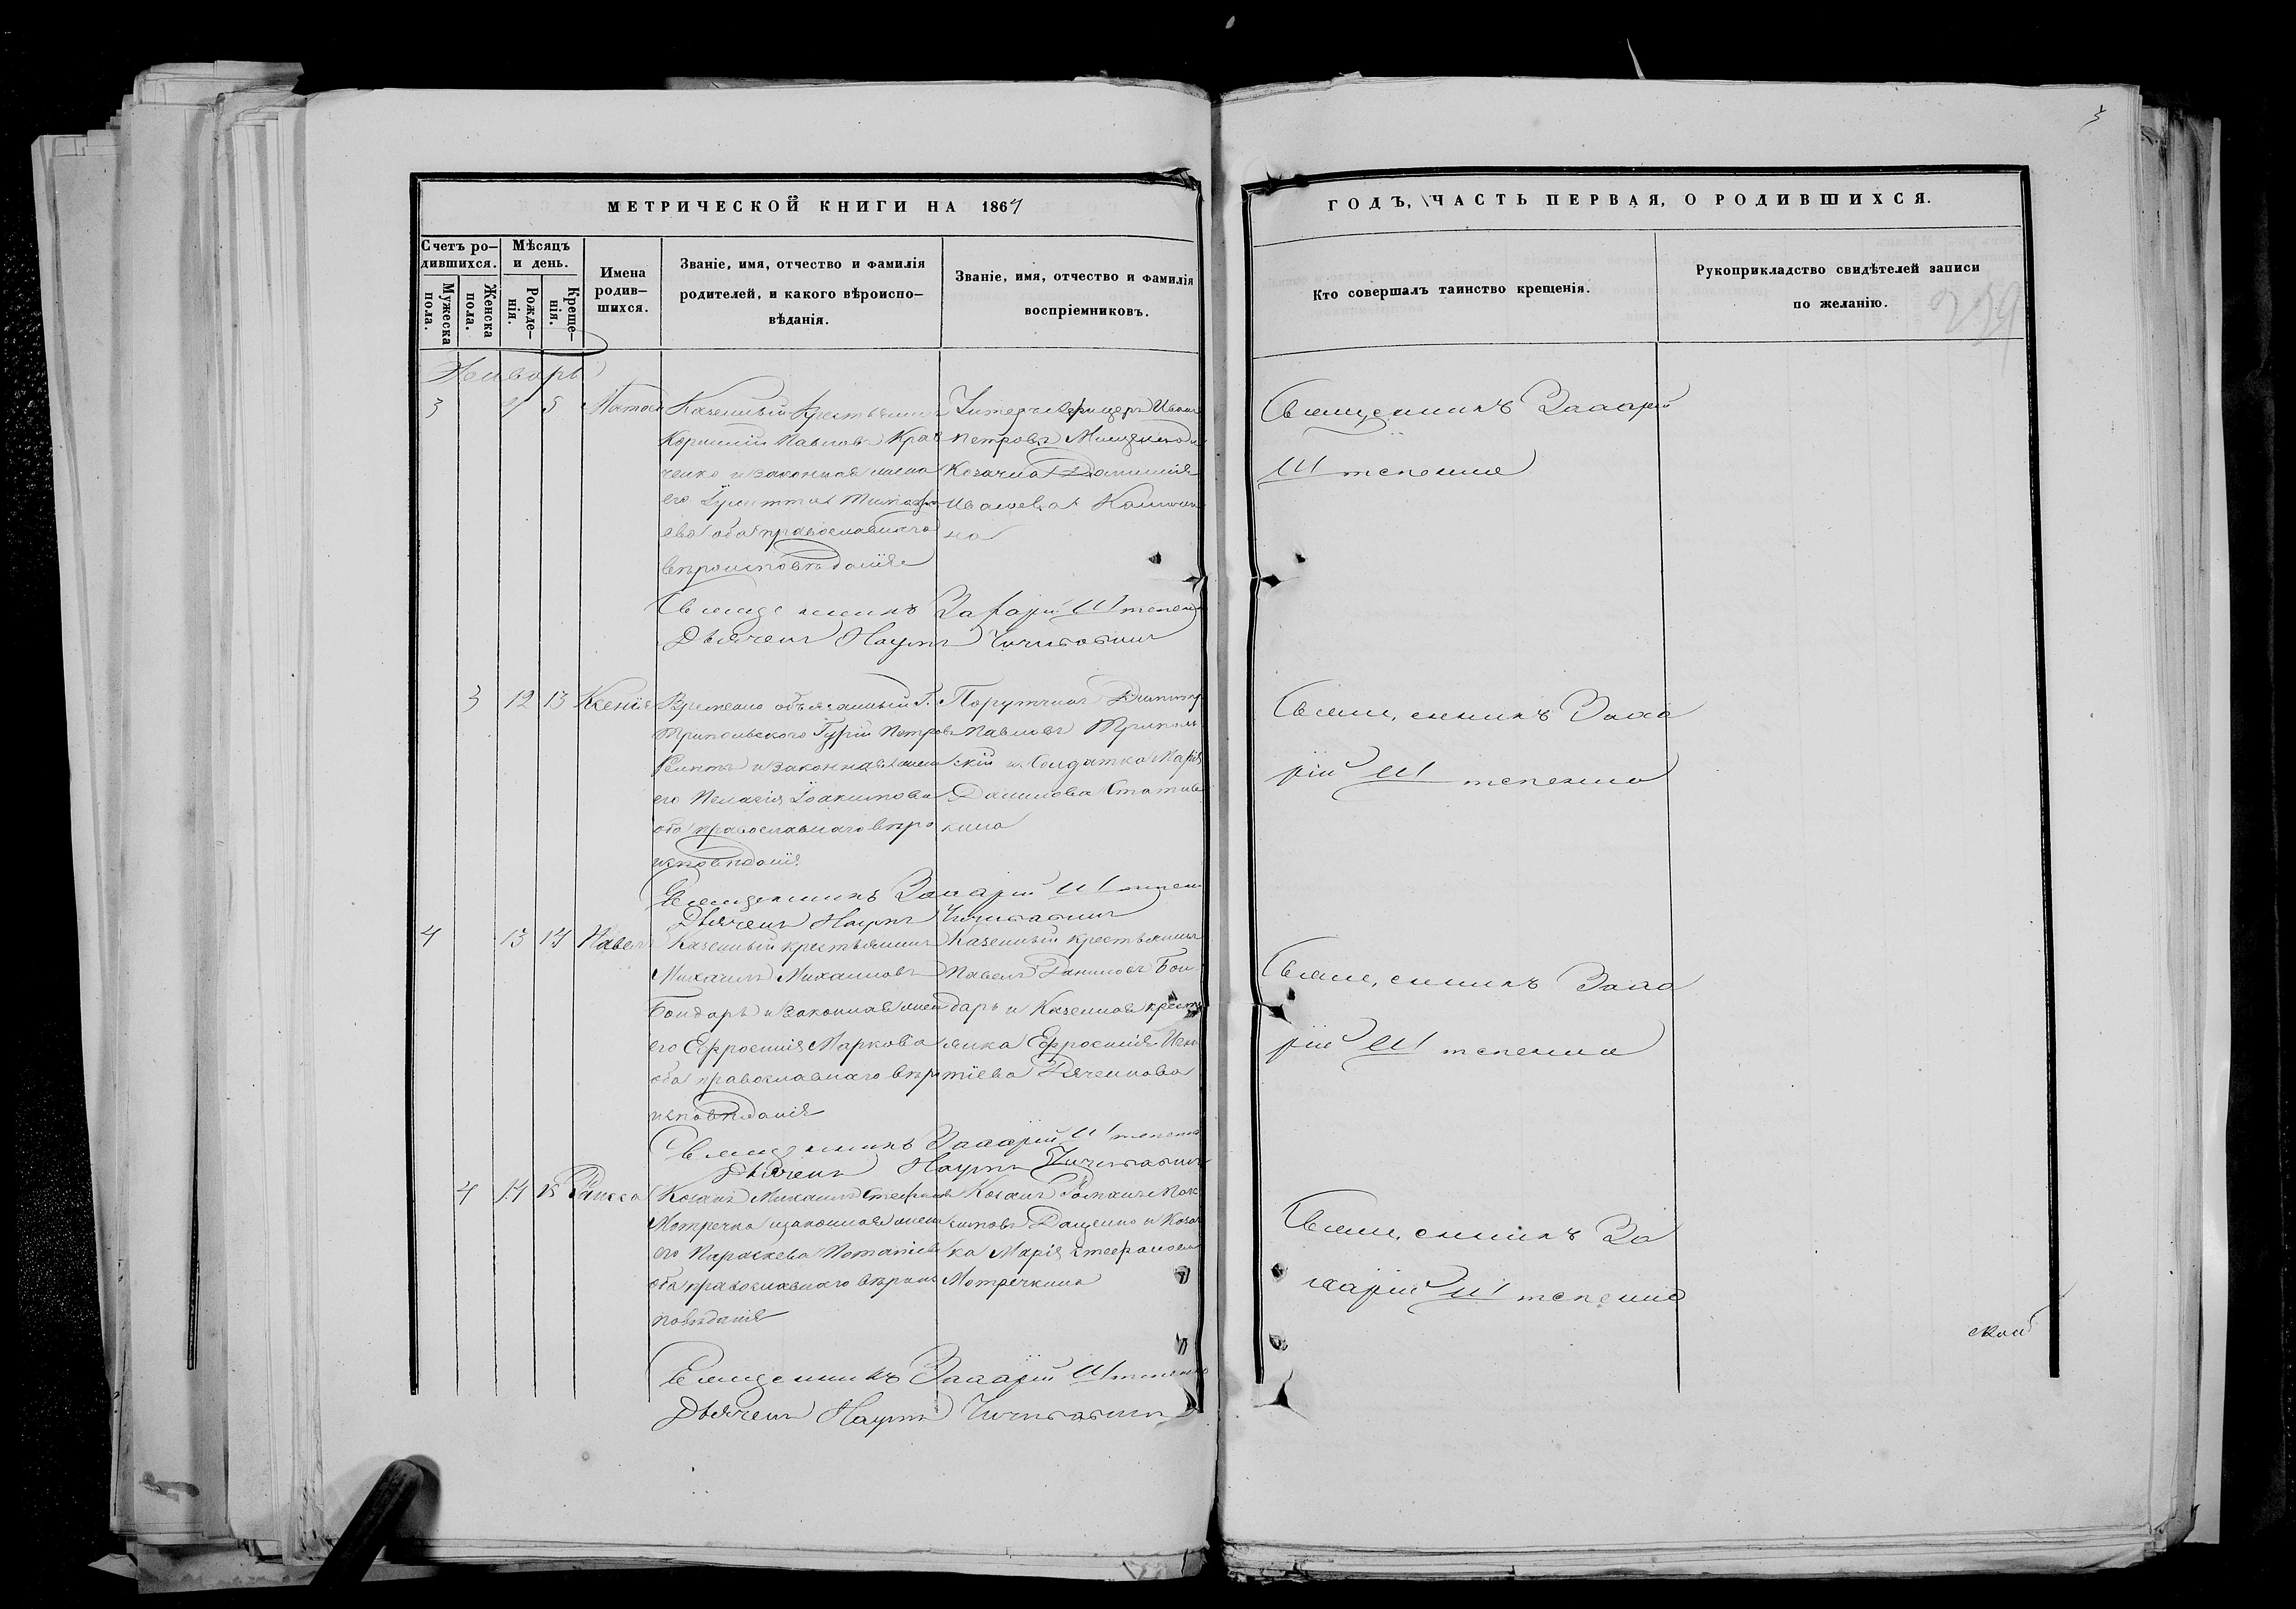 МЕТРИЧЕСКОЙ КНИГИ НА 1864
Счетъ ро-
дившихся.
Мужеска
пола.
Женска
пола.
Мѣсяцъ
и день.
Рожде-
нія.
Креще-
нія.
Имена
родив-
шихся.
Званіе, имя, отчество и фамилія
родителей, и какого вѣроиспо-
вѣданія.
Званіе, имя, отчество и фамилія
воспріемниковъ.
Январь
3 4 5
Казенный крестьянинъ
Корнилій Павловъ Крав
ченко и законная жена
его
ева оба православнаго
вѣроисповѣданія
Унтерофицеръ Иванъ
Петровъ
Козачка
Ивановна
на
Священникъ Захарій Штепенко
Дьячекъ Наумъ
3 12 13 Ксенія
Временно обязанный Г.
Трипольского Гурій Петровъ
и законная жена
его Пелагія Іоакимова
оба православнаго вѣро
исповѣданія
Поручикъ Димитр
Павловъ Триполь
скій и Солдатка Марія
Данилова
кина
Священникъ Захарій Штепен
Дьячекъ Наумъ
4 13 14 Павелъ
Казенный крестьянинъ
Михаилъ Михаиловъ
Бондарь и законная жена
его Ефросинія Маркова
оба православнаго вѣро
исповѣданія
Казенный крестьянинъ
Павелъ Даниловъ Бон
дарь и Казенная кресть
янка Ефросинія Игна
тіева
Священникъ Захарій Штепенко
Дьячекъ Наумъ
4 14 15 Раиса
Козакъ Михаилъ Стефановъ
Мотречко и законная жена
его Параскева Потапіева
оба православнаго вѣроис
повѣданія
Козакъ Романъ Мак
симовъ Даценко и Козач
ка Марія Стефанова
Мотречкина
Священникъ Захарій Штепенко
Дьячекъ Наумъ
3
ГОДЪ, ЧАСТЬ ПЕРВАЯ, О РОДИВШИХСЯ.
Кто совершалъ таинство крещенія.
Рукоприкладство свидѣтелей записи
по желанію.
Священникъ Захарій
Штепенко
Священникъ Заха
рій Штепенко
Священникъ Заха
рій Штепенко
Священникъ За
харій Штепенко
ской